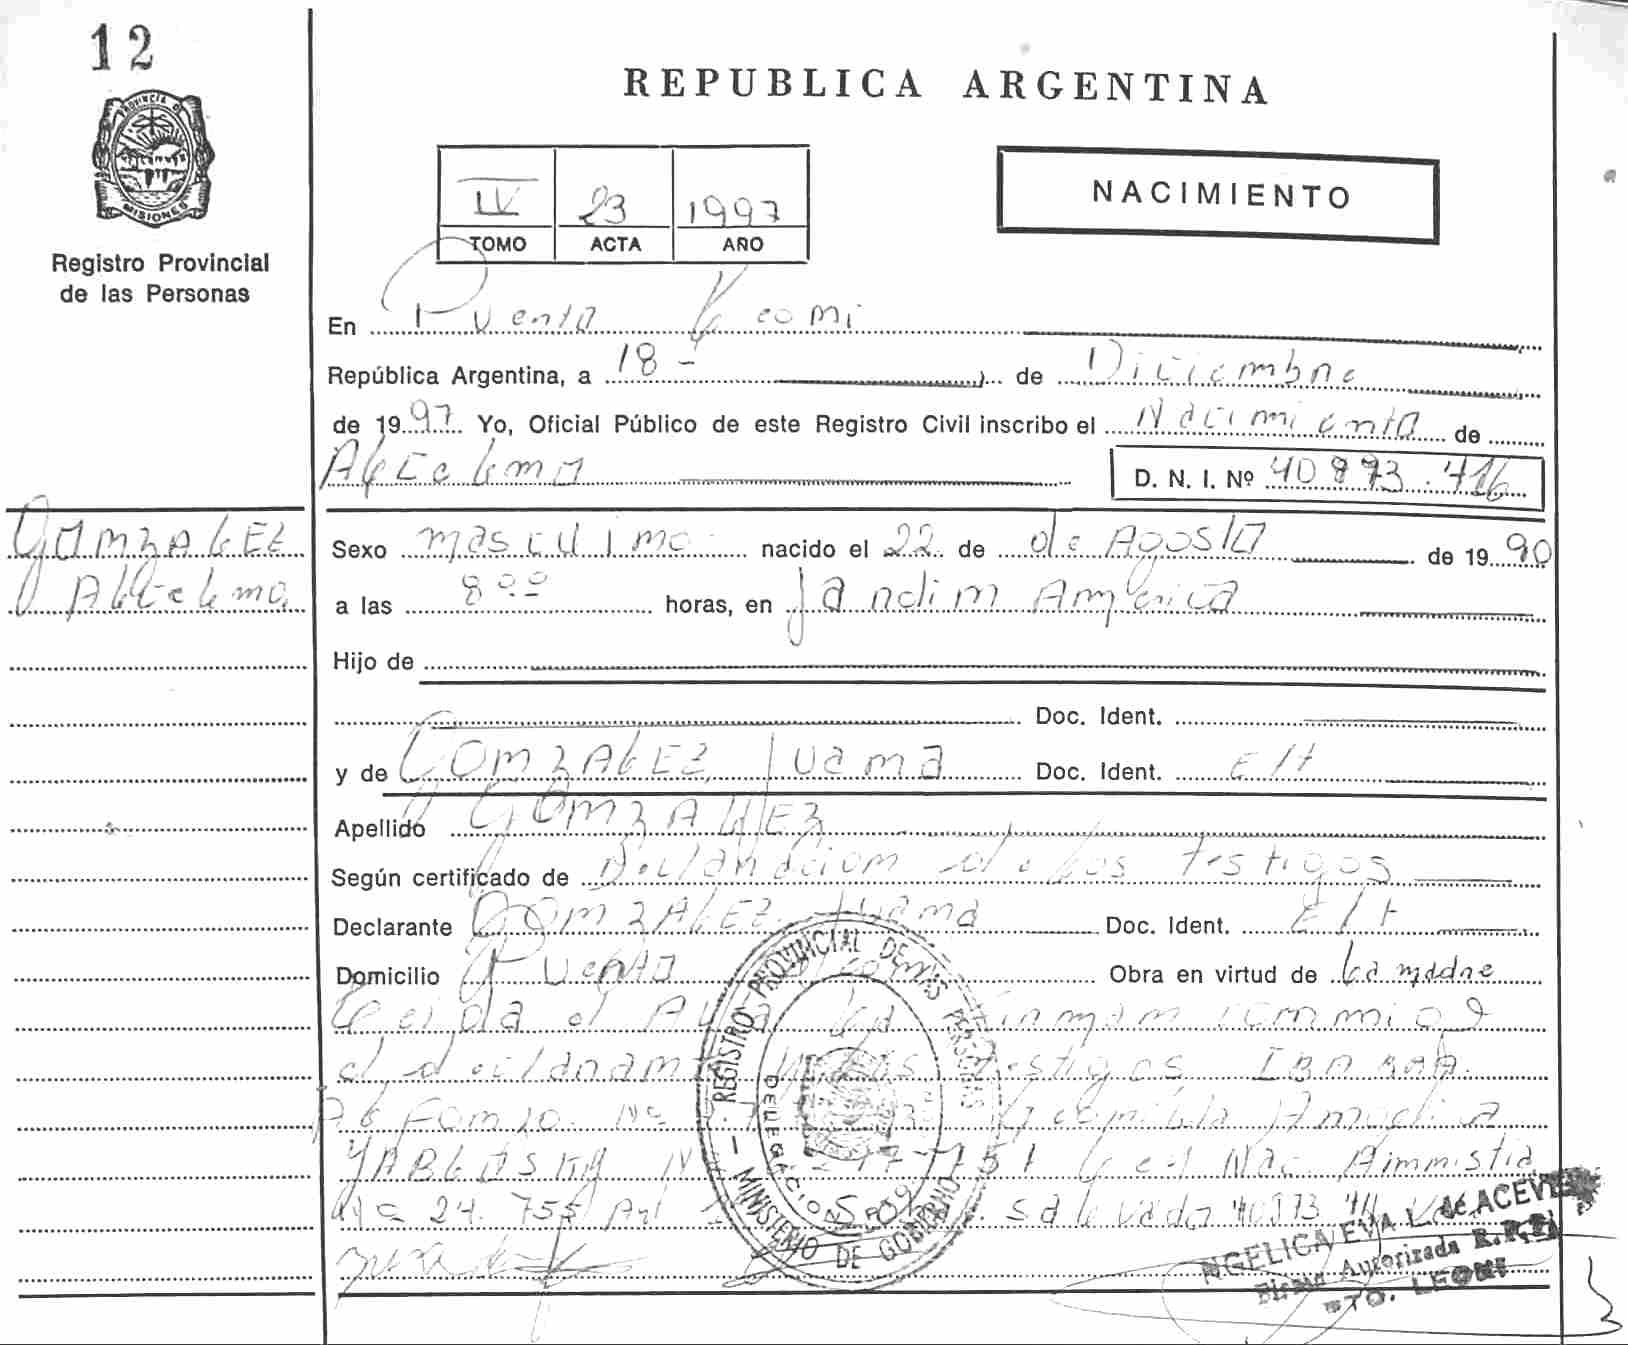 12
REPUBLICA ARGENTINA
PROVINCIA DE
MISIONES
Registro Provincial
de las Personas
IV 23 1997
TOMO ACTA AÑO
NACIMIENTO
En Puerto Leoni
República Argentina, a 18 - de Diciembre
de 1997 Yo, Oficial Público de este Registro Civil inscribo el Nacimiento de
D. N. I. Nº 40.973.716
GONZALEZ
Sexo masculino nacido el 22 de de Agosto de 1990
a las 8 horas, en Jardin America
Hijo de
Doc. Ident.
y de GONZALEZ, Juana Doc. Ident. E/t
Apellido GONZALEZ
Según certificado de Declaracion de los testigos
Declarante GONZALEZ Juana Doc. Ident. E/t
Domicilio Puerto Leoni Obra en virtud de la madre
Leida el Acta la firman conmigo
el declarante y los testigos IBARRA
Alfonzo Nº Leonilda
Nº 17 751 Ley Nac. Amnistia
Nº 24.755 Art salvado 40973 716 Vale
REGISTRO PROVINCIAL DE LAS PERSONAS
MINISTERIO DE GOBIERNO
DELEGACION
NGELICA EVA L. de ACEVE
Autorizada R.P.P.
PTO. LEONI